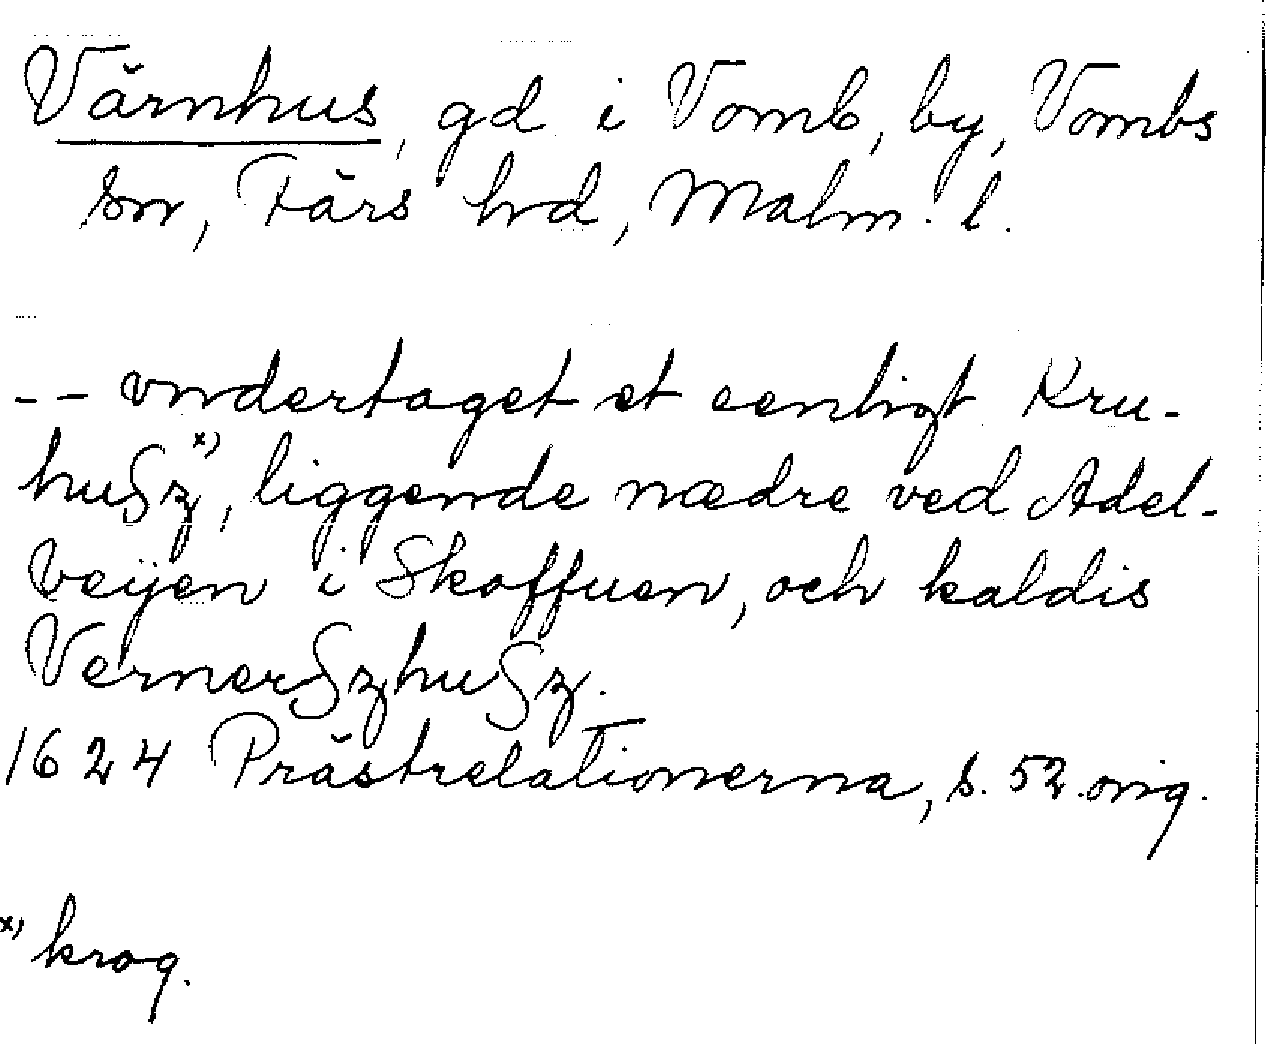 Värnhus, gd i Vomb, by, Vombs
sn, Färs hrd, Malm. l.
-- vndertaget et eenligt Kru-
huSz x), liggende nædre ved Adel-
veÿen i Skoffuen, och kaldis
VernerSzhuSz.
1624 Prästrelationerna, s. 52 orig.
x) krog.